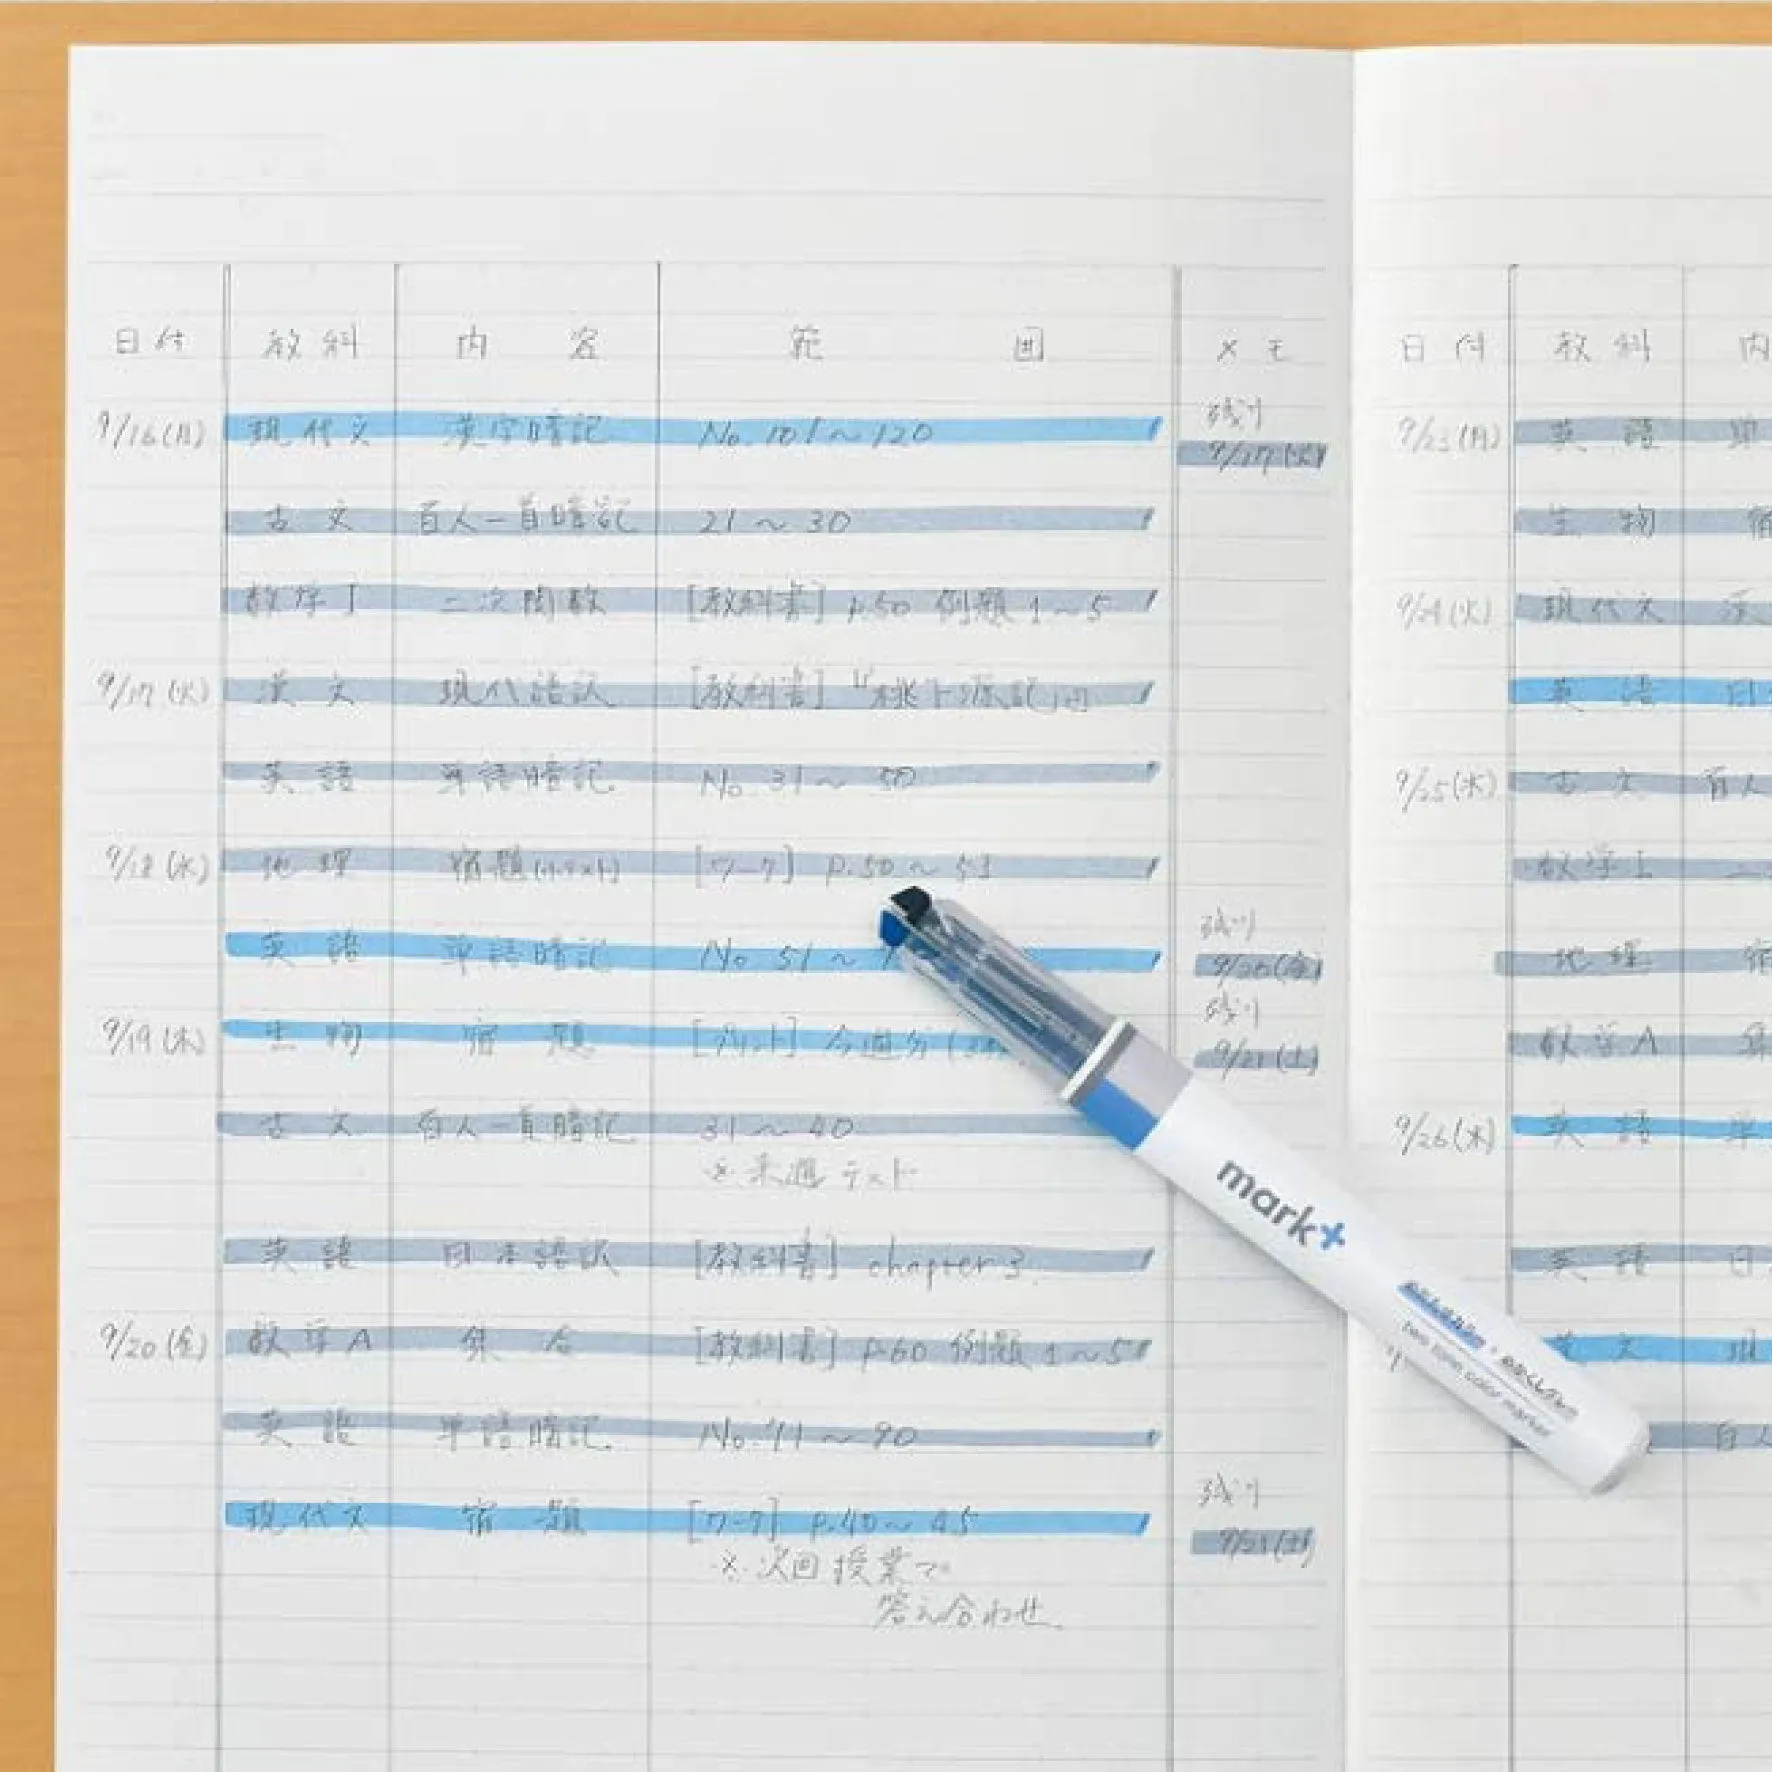 日付 教科 内容 範囲 メモ
9/16(月) 現代文 漢字暗記 No.101～120 残り
9/17(火)
古文 百人一首暗記 21～30
数学Ⅰ 二次関数 [教科書] p.50 例題1～5
9/17(火) 漢文 現代語訳 [教科書]
英語 単語暗記 No.31～50
9/18(水) 地理 宿題(小テスト) [ワーク] p.50～53
残り
英語 単語暗記 No.51～ 9/20(金)
残り
9/19(木) 生物 宿題 [プリント] 今週分
9/21(土)
古文 百人一首暗記 31～40
※来週テスト
英語 日本語訳 [教科書] chapter 3
9/20(金) 数学A 集合 [教科書] p.60 例題1～5
英語 単語暗記 No.71～90
残り
現代文 宿題 [ワーク] p.40～45
9/21(土)
※次回授業で
答え合わせ
日付 教科 内
9/23(月) 英語 単
生物 宿
9/24(火) 現代文
英語 日
9/25(水) 古文 百人
数学Ⅰ 二
地理 宿
数学A 集
9/26(木) 英語 単
英語 日
文 現
百人
mark+
two tone color marker